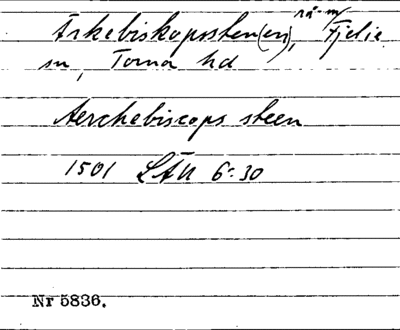 Ärkebiskopssten(en), rå-m, Fjelie
sn, Torna hd
Aerchebiscops steen
1501 LÄU 6:30
Nr 5836.